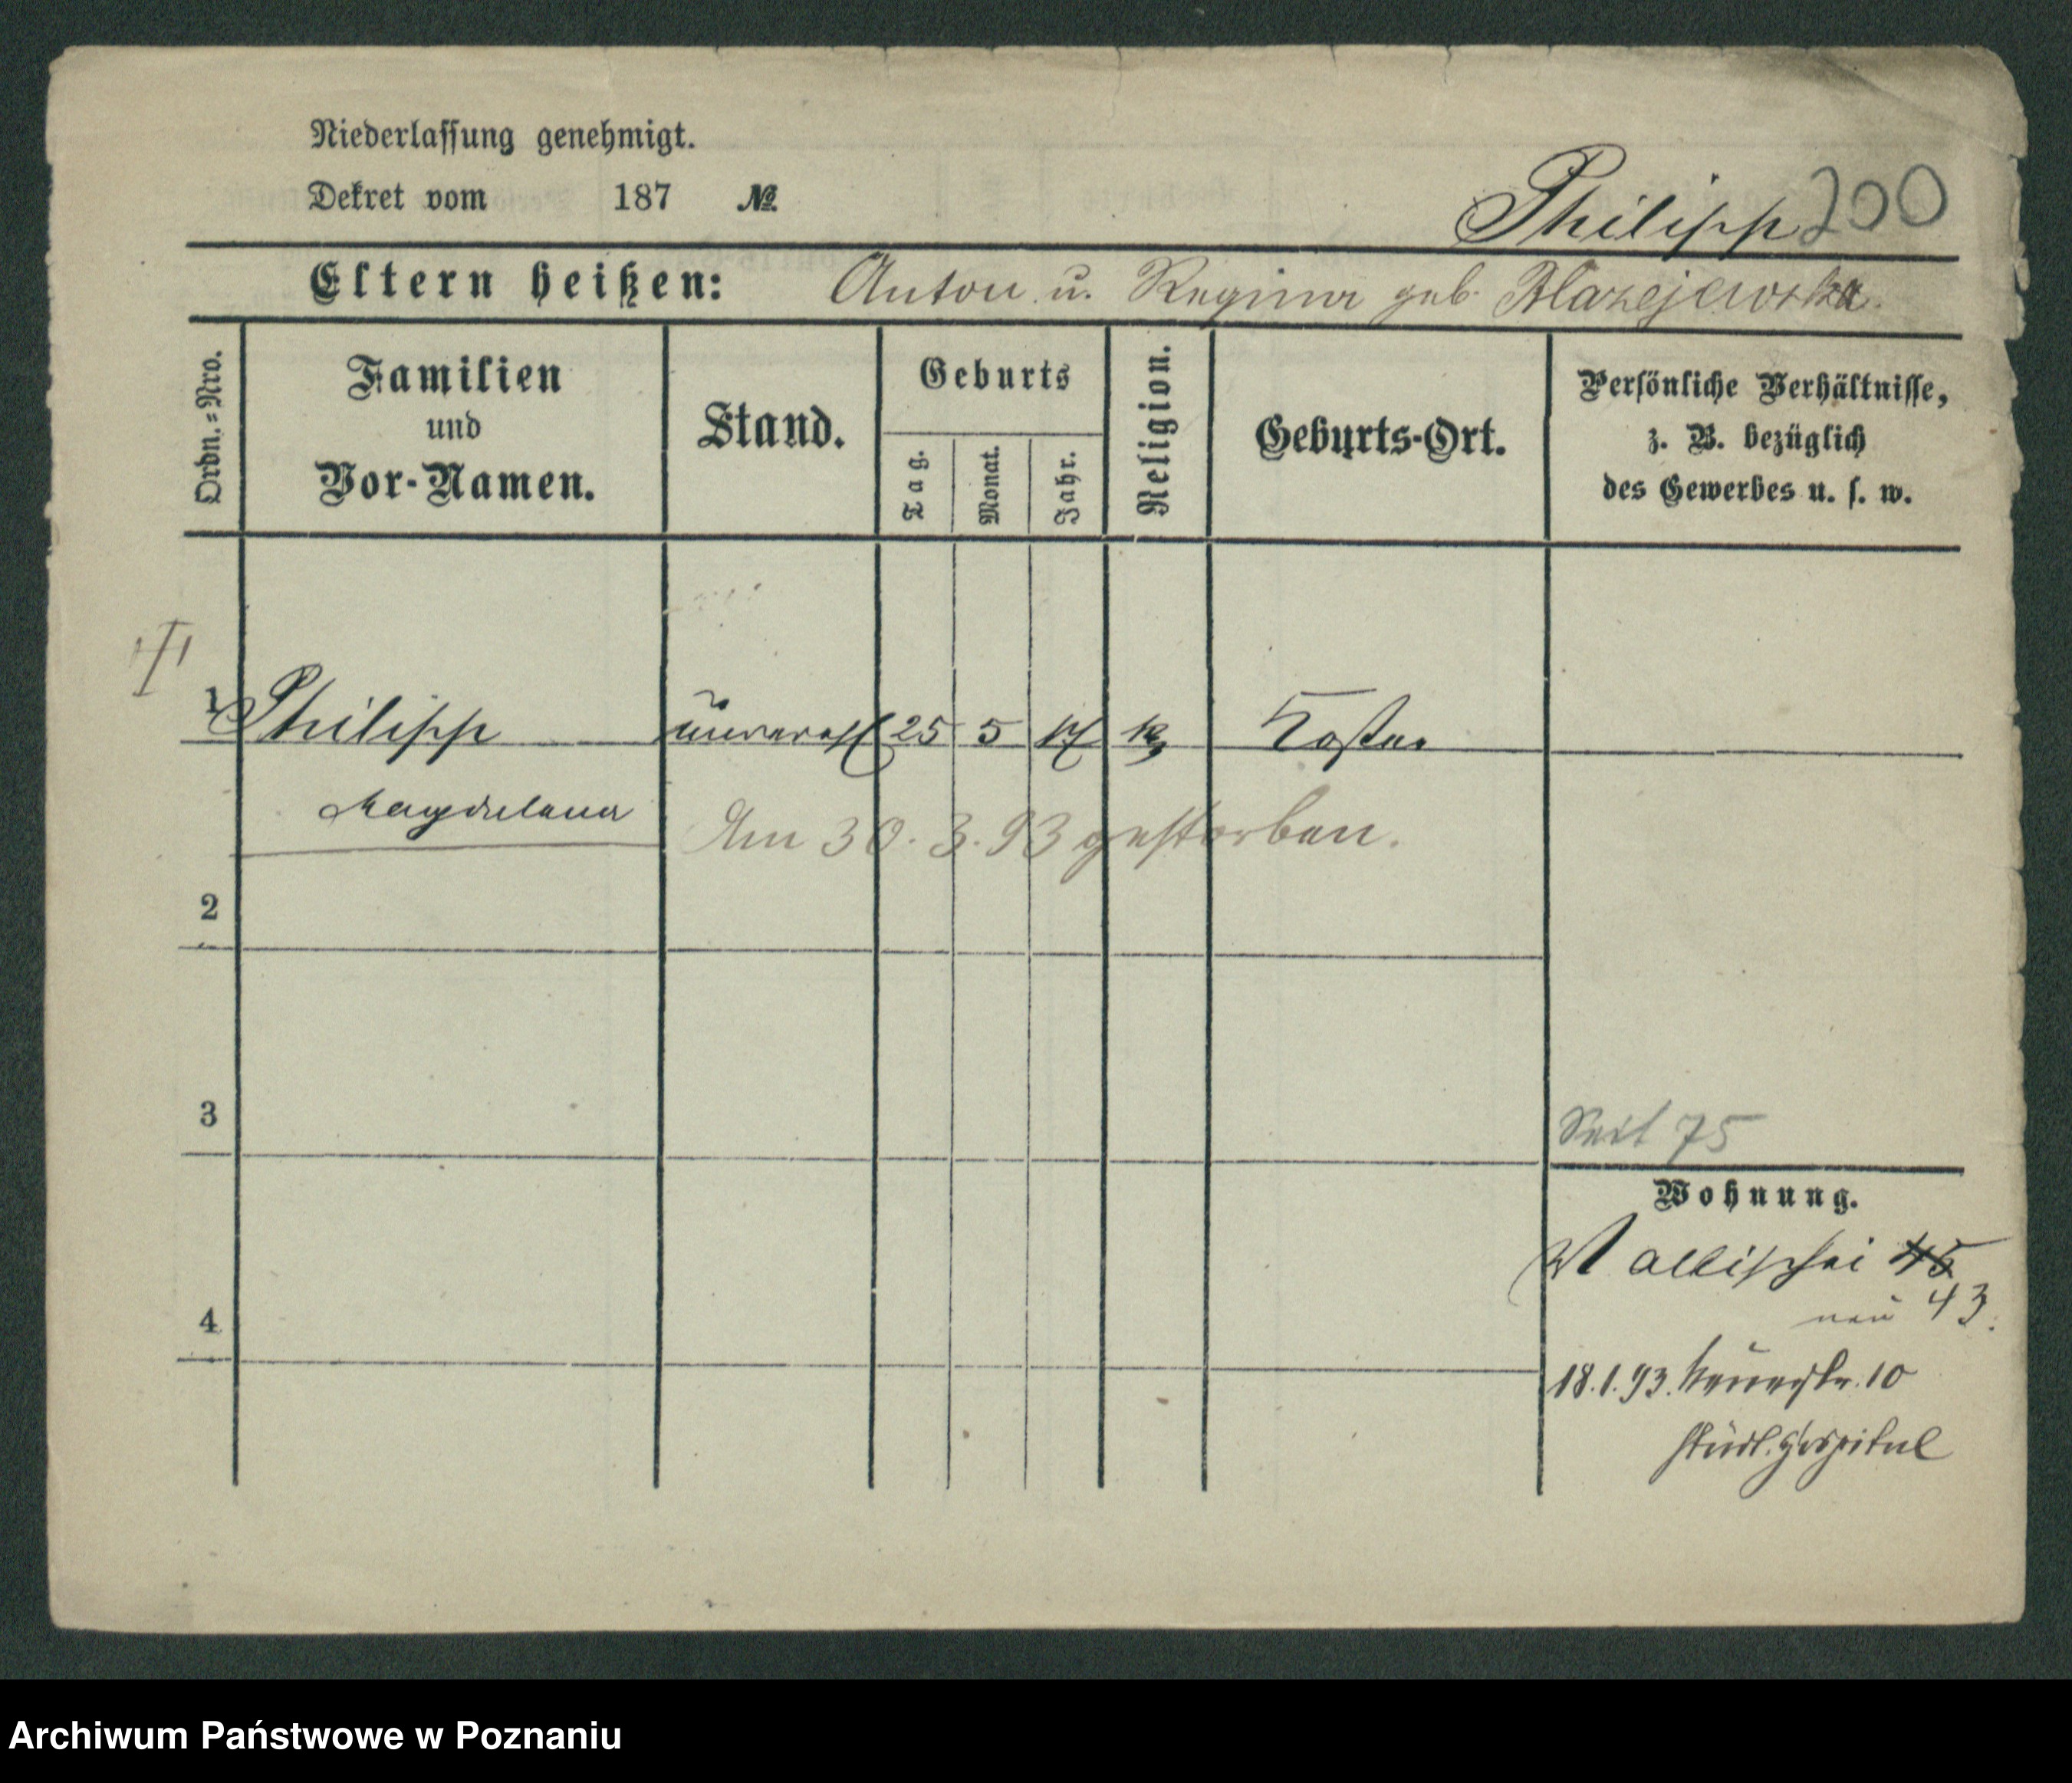 Niederlassung genehmigt.
Dekret vom 187 №
Philipp 200
Eltern heißen: Anton u. Regina geb. Blazejewska.
Ordn.=Nro.
Familien
und
Vor-Namen.
Stand.
Geburts
Tag.
Monat.
Jahr.
Religion.
Geburts-Ort.
Persönliche Verhältnisse,
z. B. bezüglich
des Gewerbes u. s. w.
1 Philipp unvereh 25 5 17 k Kosten
Magdalena
Am 30. 3. 93 gestorben.
2
3
Seit 75
Wohnung.
Wallischei 45
neu 43.
4
18.1.93. Neuestr. 10
städt. Hospital
Archiwum Państwowe w Poznaniu